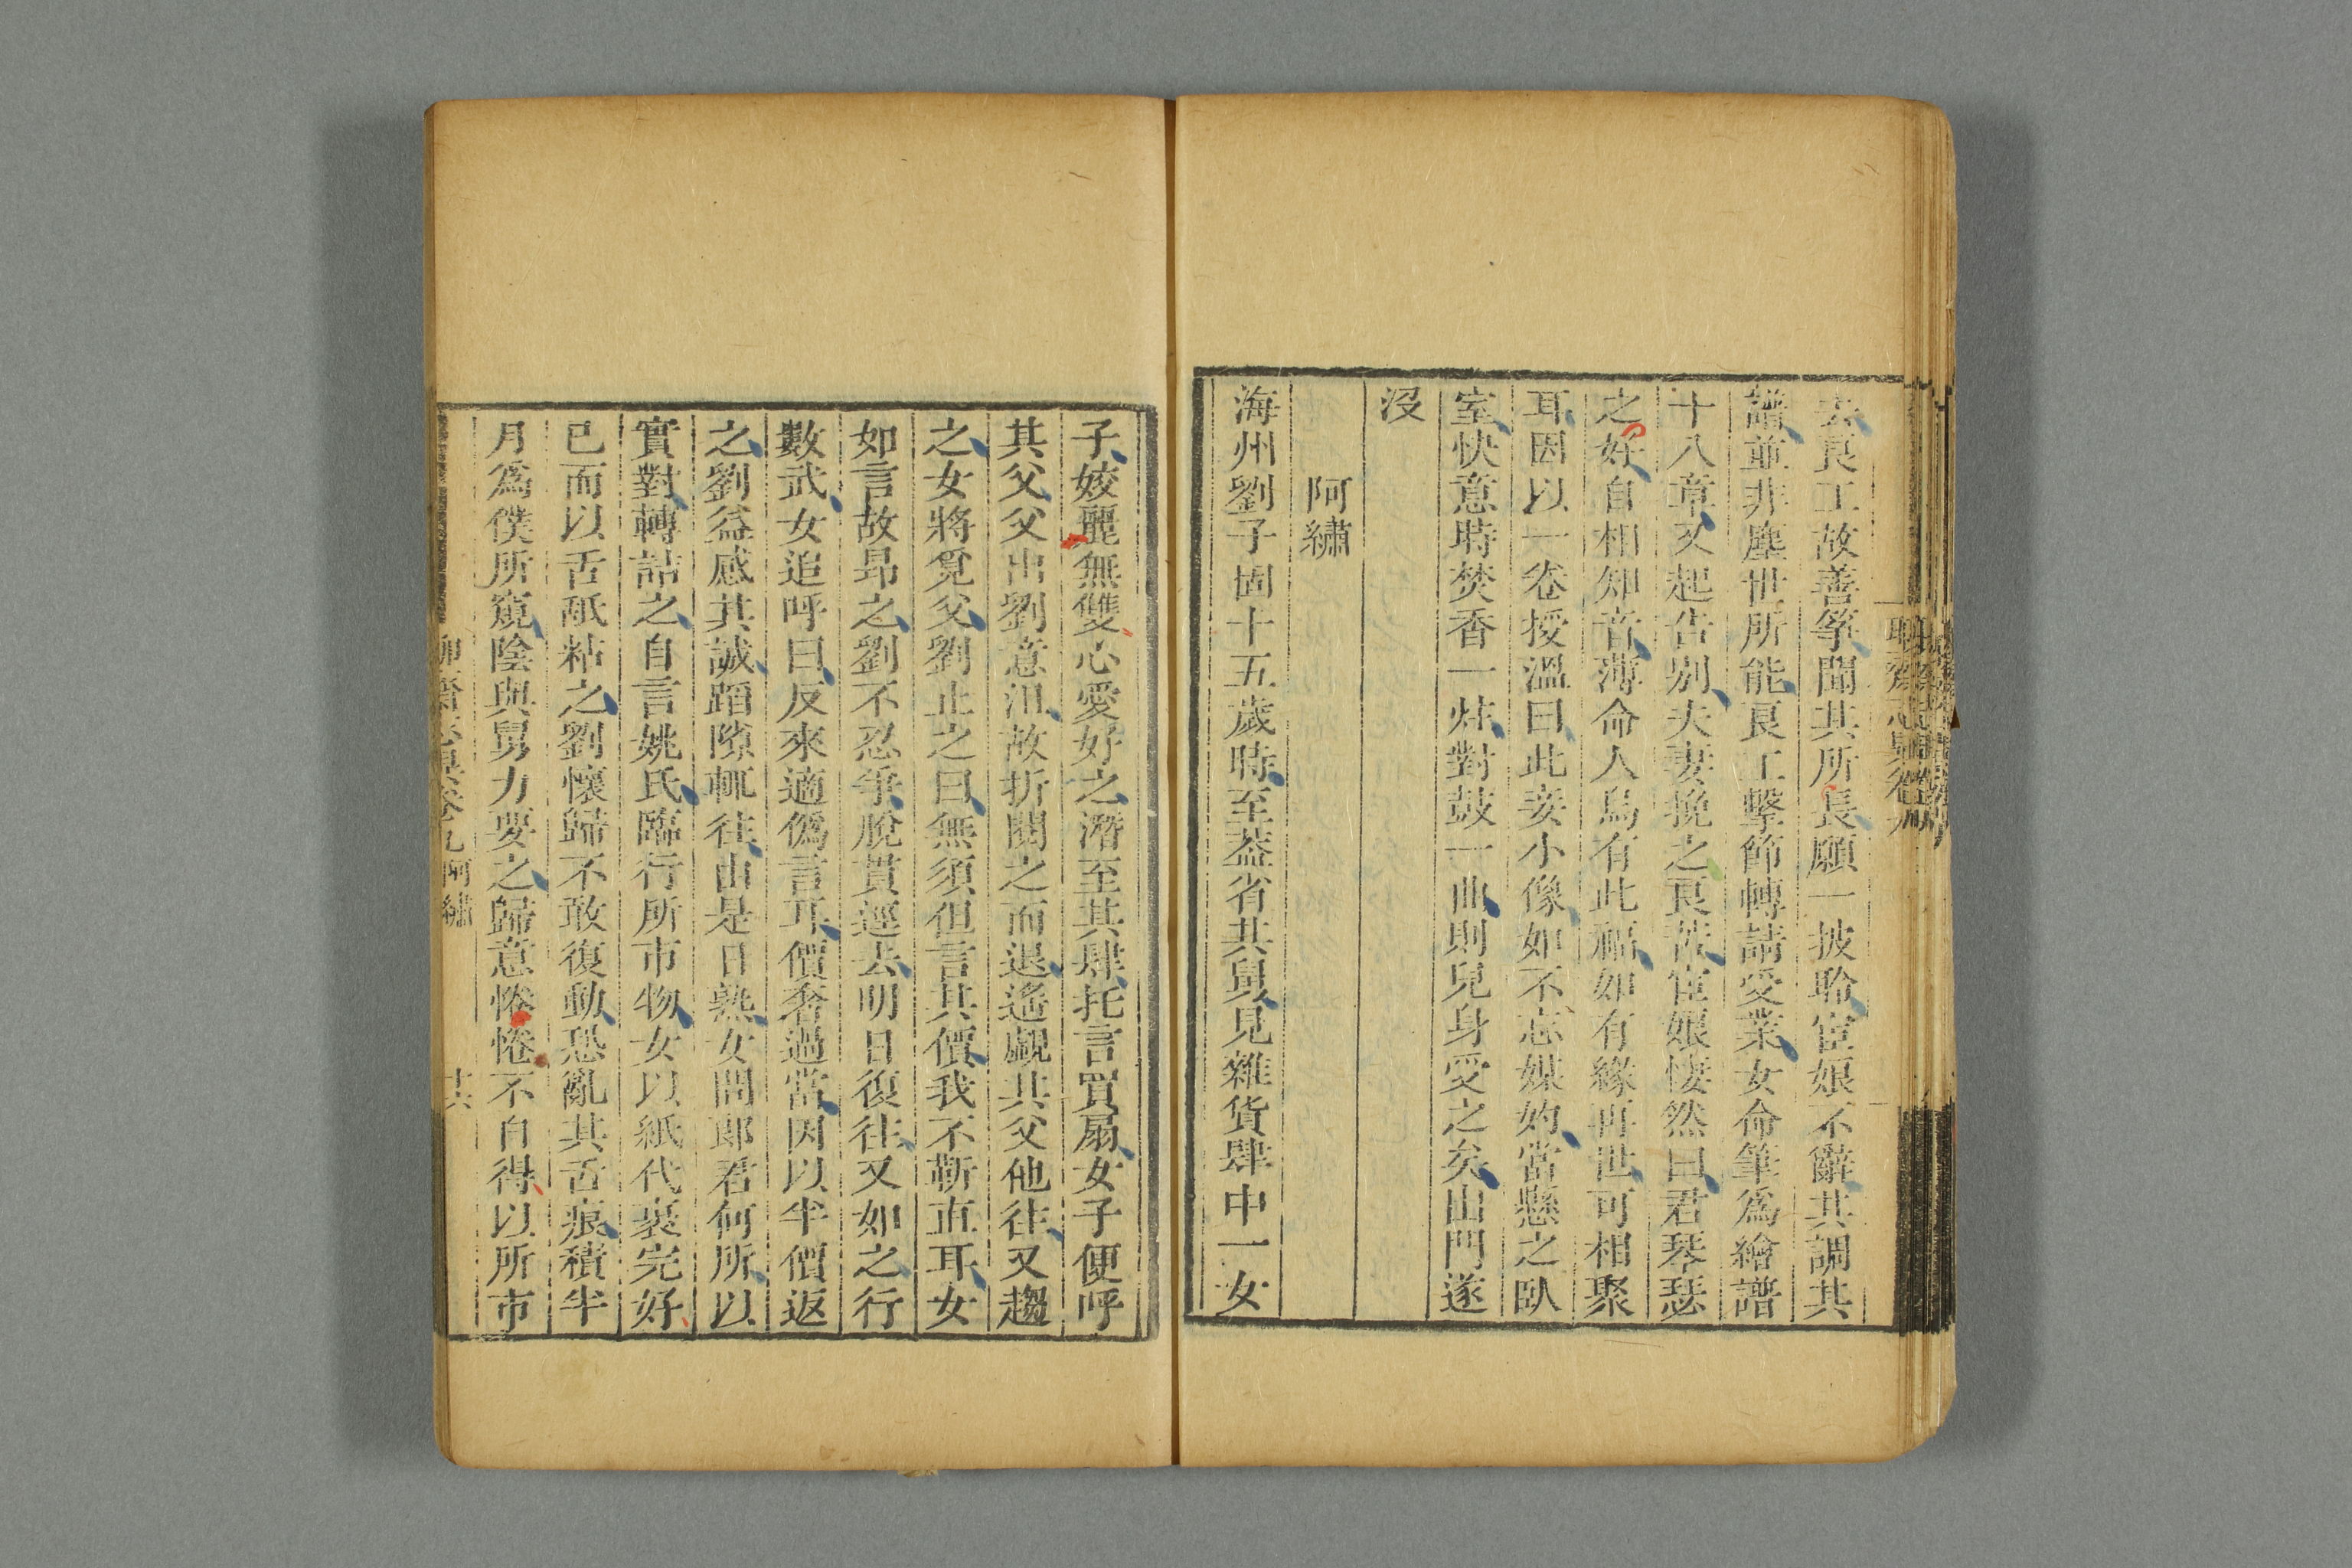 去良工故善箏聞其所長願一披聆宦娘不辭其調其
譜並非塵世所能良工擊節轉請受業女命筆爲繪譜
十八章又起告別夫妻挽之良苦宦娘悽然曰君琴瑟
之好自相知音薄命人烏有此福如有緣再世可相聚
耳因以一卷授溫曰此妾小像如不忘媒妁當懸之臥
室快意時焚香一炷對鼓一曲則兒身受之矣出門遂
沒
阿繡
海州劉子固十五歲時至蓋省其舅見雜貨肆中一女
子姣麗無雙心愛好之潛至其肆托言買扇女子便呼
其父父出劉意沮故折閱之而退遙覷其父他往又趨
之女將覓父劉止之曰無須但言其價我不靳直耳女
如言故昂之劉不忍爭脫貫逕去明日復往又如之行
數武女追呼曰反來適僞言耳價奢過當因以半價返
之劉益感其誠蹈隙輒往由是日熟女問郎君何所以
實對轉詰之自言姚氏臨行所市物女以紙代裹完好
已而以舌舐粘之劉懷歸不敢復動恐亂其舌痕積半
月爲僕所窺陰與舅力要之歸意惓惓不自得以所市
聊齋志異卷九 阿繡